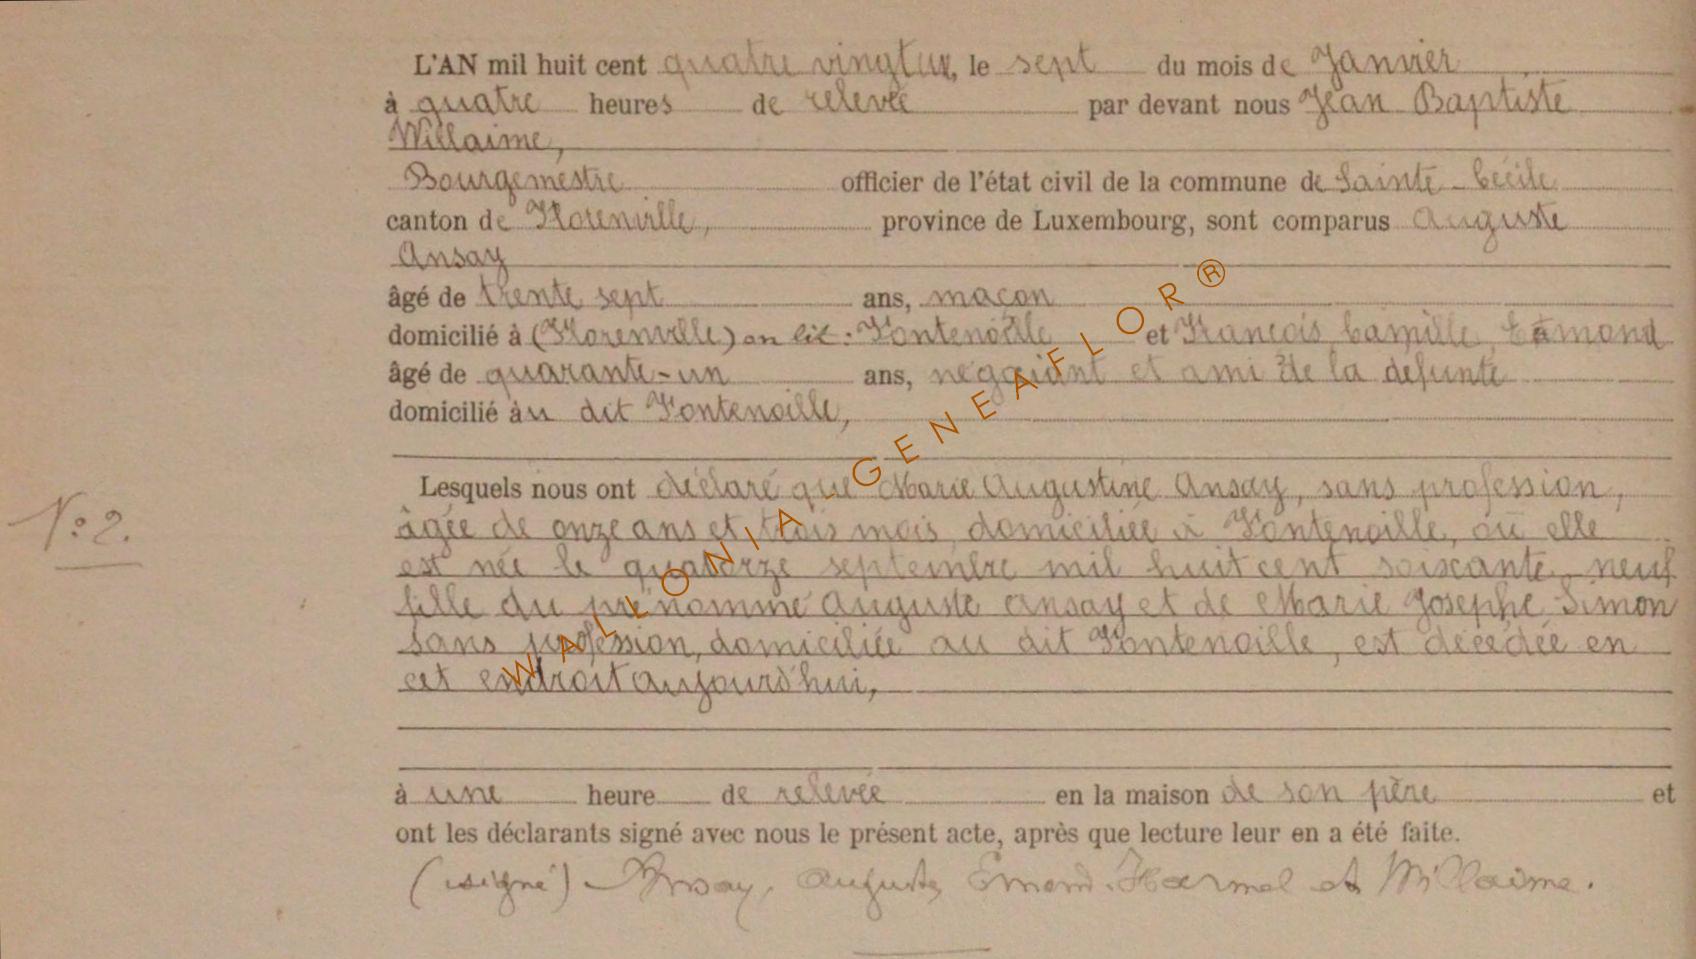 L'AN mil huit cent quatre vingt un, le sept du mois de Janvier
à quatre heures de relevée par devant nous Jean Baptiste
Willaime,
Bourgemestre officier de l'état civil de la commune de Sainte-Cécile
canton de Florenville, province de Luxembourg, sont comparus Auguste
Ansay
âgé de trente sept ans, maçon
domicilié à (Florenville) on lit : Fontenoille et François Camille Emond
âgé de quarante-un ans, négociant et ami de la défunte
domicilié au dit Fontenoille,
Lesquels nous ont déclaré que Marie Augustine Ansay, sans profession,
N°: 2.
âgée de onze ans et trois mois, domiciliée à Fontenoille, où elle
est née le quatorze septembre mil huit cent soixante neuf
fille du prénommé Auguste Ansay et de Marie Josephe Simon
sans profession, domiciliée au dit Fontenoille, est décédée en
cet endroit aujourd'hui,
à une heure de relevée en la maison de son père et
ont les déclarants signé avec nous le présent acte, après que lecture leur en a été faite.
(signé) Ansay, Auguste, Emond. et Willaime.
WALLONIA GENEAFLOR®